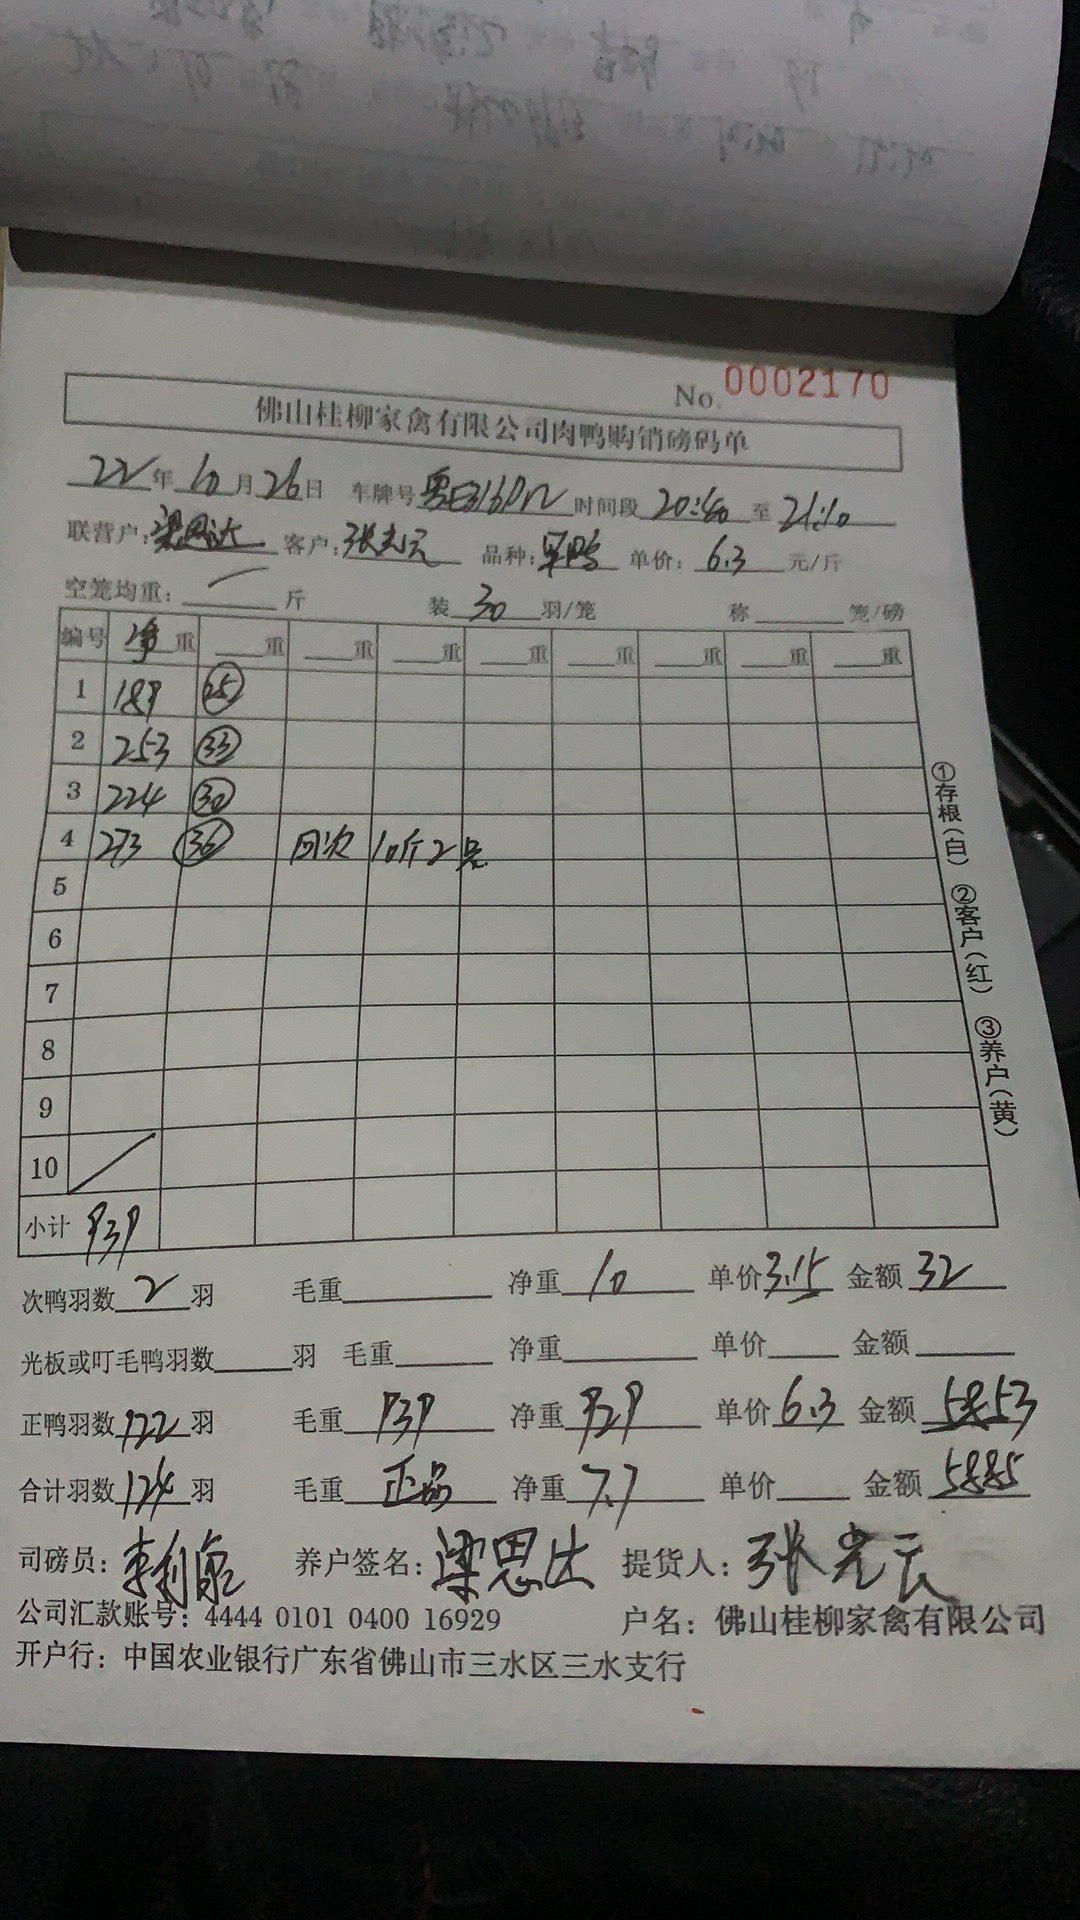 No. 0002170
佛山桂柳家禽有限公司肉鸭购销磅码单
22年10月26日 车牌号 时间段 20:40 至 21:10
联营户:梁恩达 客户:张光元 品种: 单价: 6.3 元/斤
空笼均重: 斤 装 30 羽/笼 称 笼/磅
编号 净重 重 重 重 重 重 重 重 重
1 189 25
2 253 33
3 224 30
4 273 36 回次 10斤2只
5
6
7
8
9
10
小计 939
①存根(白) ②客户(红) ③养户(黄)
次鸭羽数 2 羽 毛重 净重 10 单价 3.15 金额 32
光板或叮毛鸭羽数 羽 毛重 净重 单价 金额
正鸭羽数 122 羽 毛重 939 净重 929 单价 6.3 金额 5853
合计羽数 124 羽 毛重 正品 净重 7.7 单价 金额 5885
司磅员: 养户签名:梁恩达 提货人:张光元
公司汇款账号: 4444 0101 0400 16929 户名: 佛山桂柳家禽有限公司
开户行: 中国农业银行广东省佛山市三水区三水支行